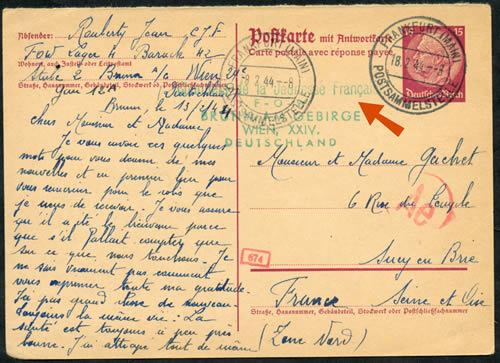 Absender: Rauberty Jean C.J.F
Lager Barack 42
Wohnort, auch Zustell- oder Leitpostamt
Stube 2 Brunn a/G Wien 24e
Straße, Hausnummer, Gebäudeteil, Stockwerk od. Postschließfachnummer
Gau 128 Deutschland
Brunn le 13/2/44
Chers Monsieur et Madame
Je vous envoie ces quelques
mots pour vous donner de mes
nouvelles et en premier lieu pour
vous remercier pour le colis que
je viens de recevoir. Je vous assure
que il a été le bienvenu parce
que s'il fallait compter que
sur ce que nous touchons. Je
ne sais vraiment pas comment
vous exprimer toute ma gratitude.
J'ai pas grand chose de nouveau.
Toujours la même vie. La
santé est toujours à peu près
bonne. J'ai attrapé tout de même
Postkarte mit Antwortkarte
Carte postale avec réponse payée
15
Deutsches Reich
FRANKFURT (MAIN)
18.2.44.-8
POSTSAMMELSTELLE
FRANKFURT (MAIN)
2.44.-8
de la Jeunesse Française
F-O
BRUNN AM GEBIRGE
WIEN XXIV.
DEUTSCHLAND
Monsieur et Madame Gachet
6 Rue du Temple
Ae
674
Sucy en Brie
France Seine et Oise
Straße, Hausnummer, Gebäudeteil, Stockwerk oder Postschließfachnummer
(Zone Nord)